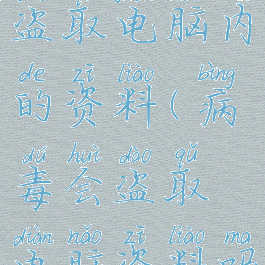 盗取电脑内
de zī liào bìng
的资料(病
dú huì dào qǔ
毒会盗取
diàn nǎo zī liào ma
电脑资料吗